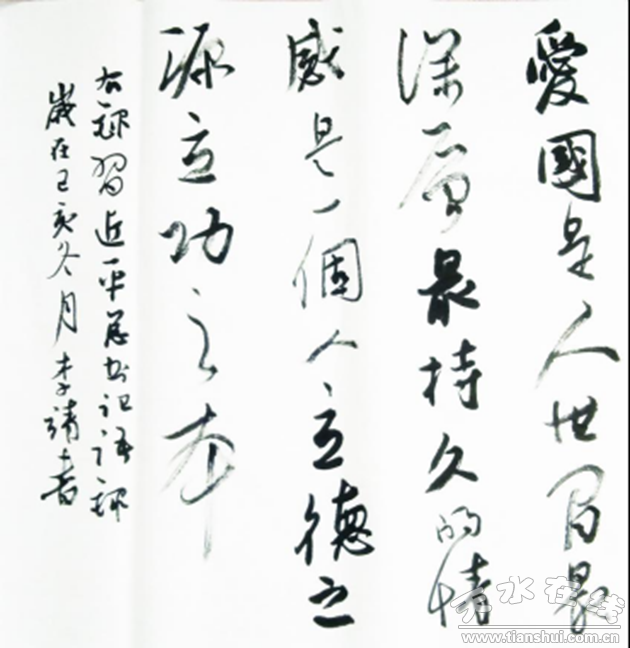 愛國是人世間最
深厚最持久的情
感是一個人立德之
源立功之本
右錄習近平总书记语録
歲在己亥冬月李靖書
天水在线
www.tianshui.com.cn